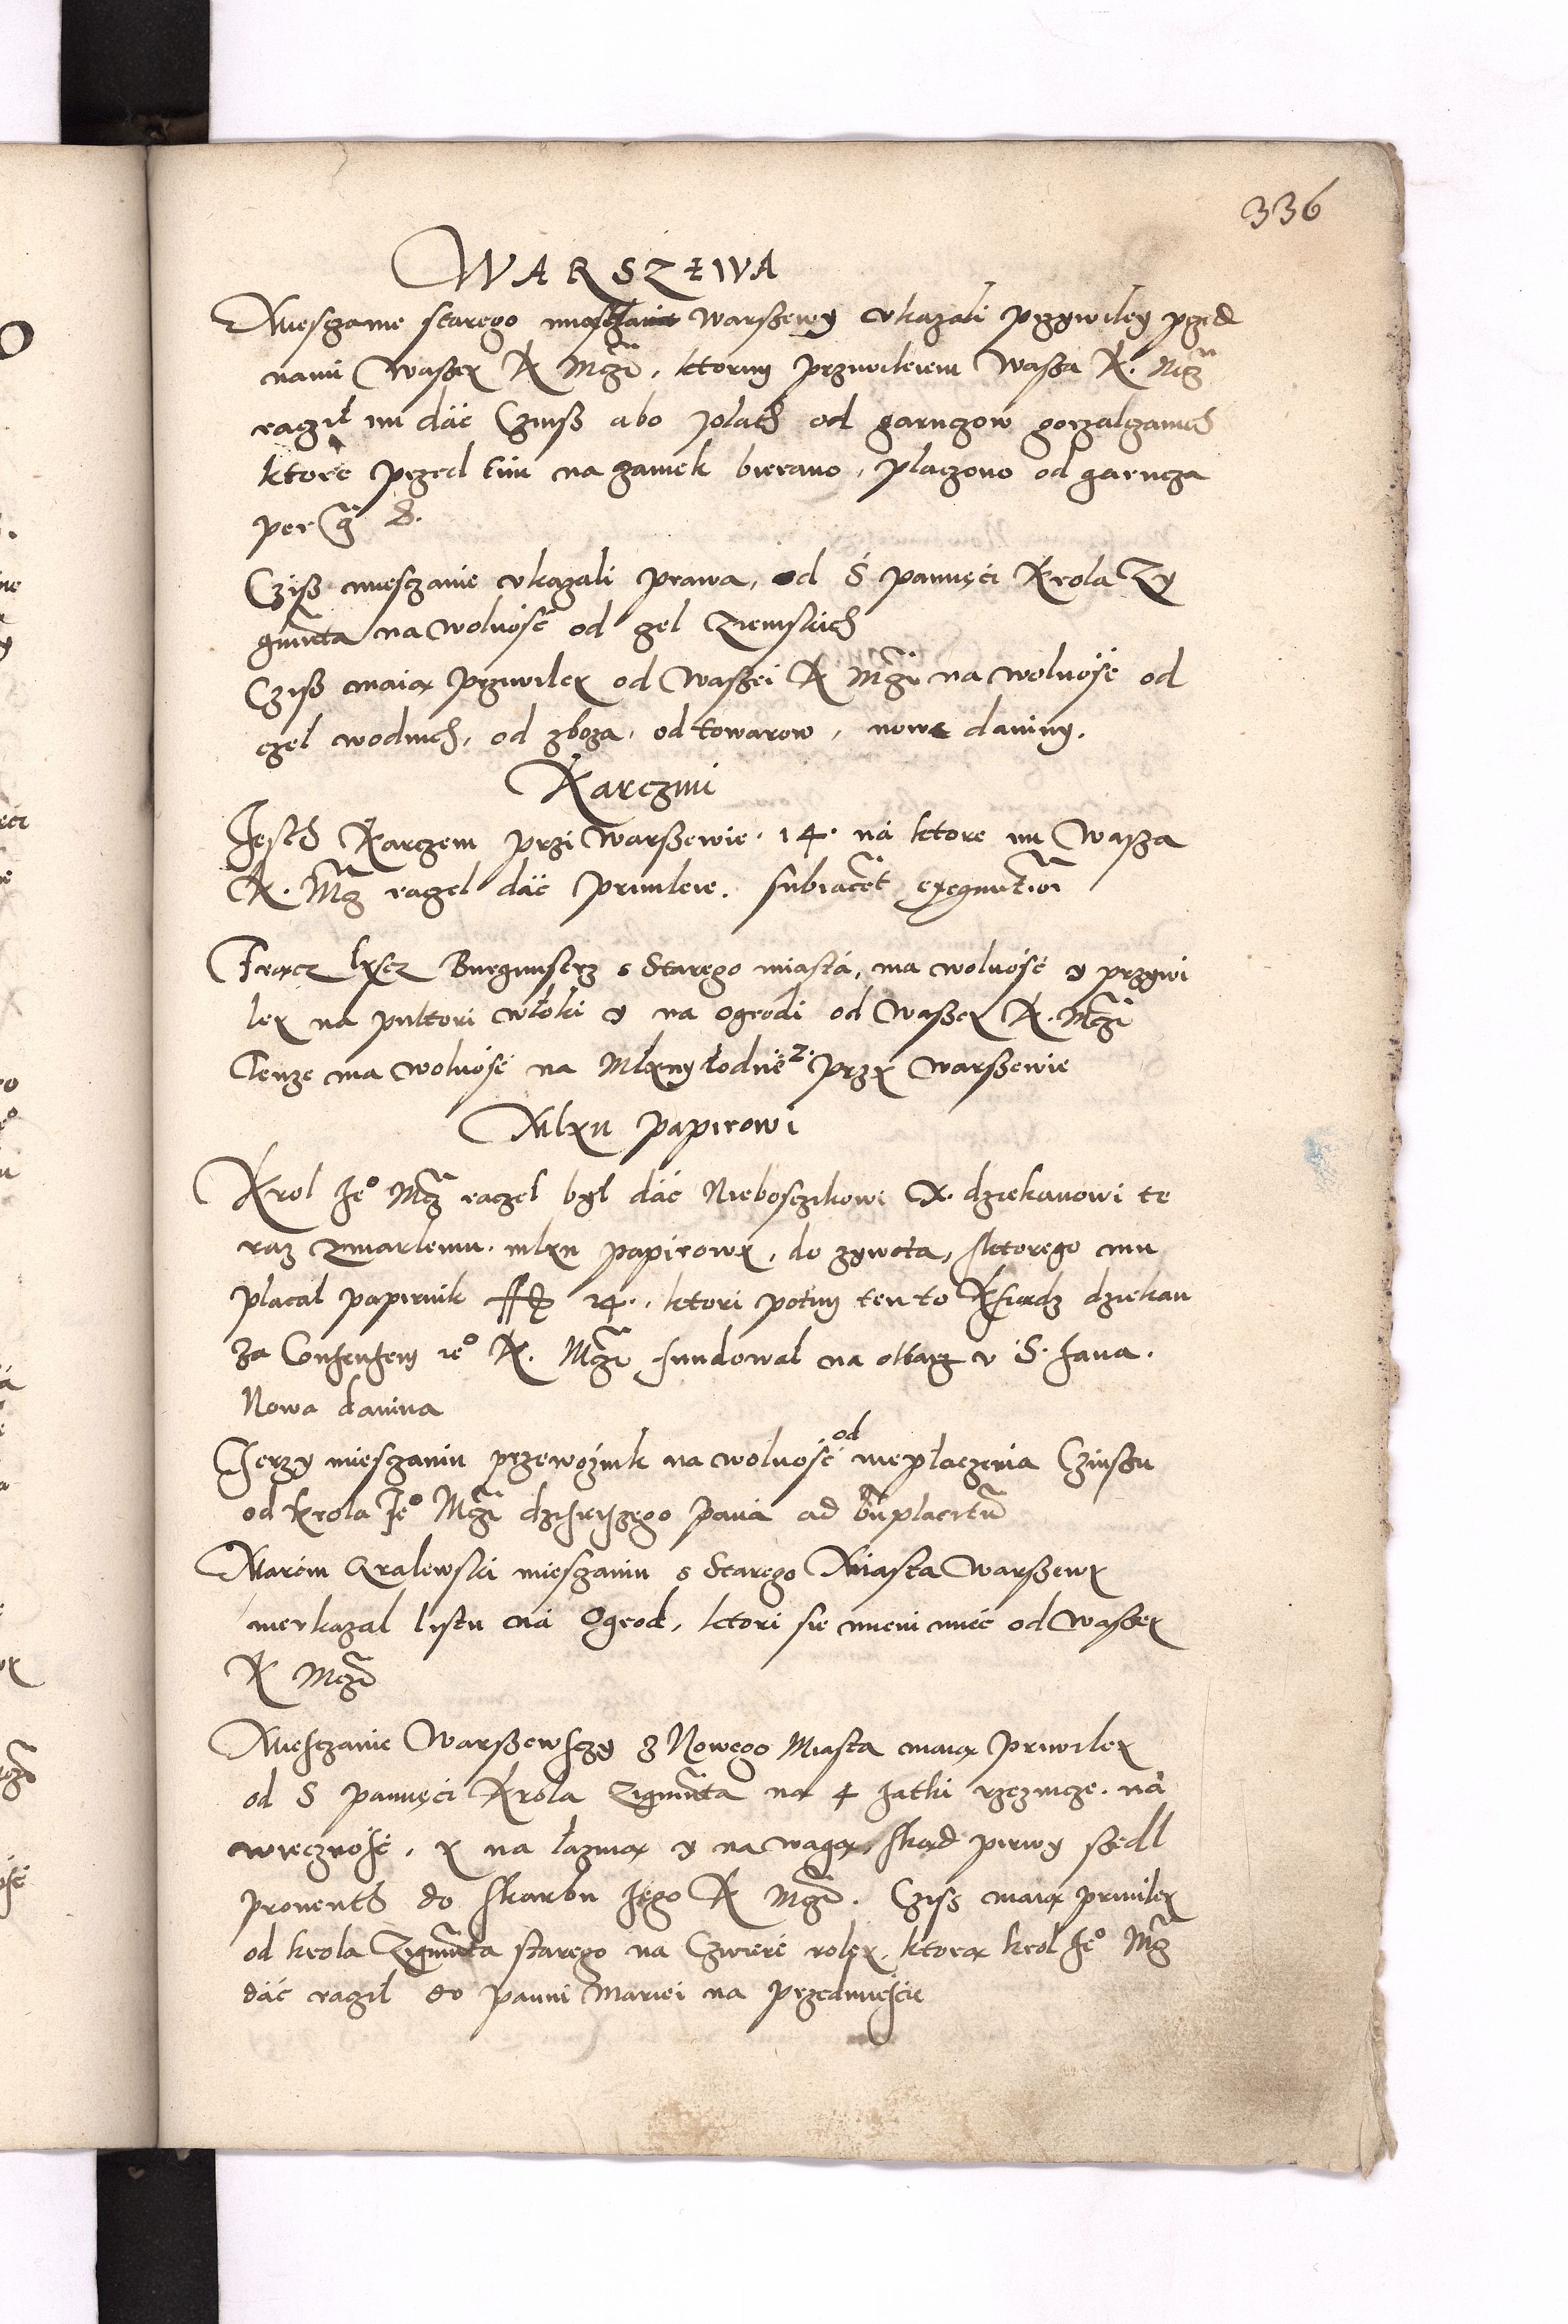 336
WARSZEWA
Miesczanie starego miasta Warßewy vkazali przywiley przed
nami Waßey K Mczi, ktorym przywileiem Waßa K. Mcz
raczil im dać Czinß abo polath od garnczow gorzalczanich
ktore przed tim na zamek bierano, placzono od garncza
per g 8.
Cziß miesczanie vkazali prawa, od S pamięci Krola Zy
gmunta na wolnosć od czel Ziemskich
Cziß maią przywiley od Waßei K Mczi na wolnosć od
czel wodnich, od zboza, od towarow, nowe daniny.
Karczmi
Jesth Karczem przi Warßewie 14. ná ktore im Waßa
K. Mcz raczel dać priuileie. subiacet exegnutioi
Burgmistrz s Starego miastá, ma wolnosć y przywi
ley na pultori wloki y na ogrodi od Waßey K. Mczi
Tenze ma wolnosć na Mlyny łodne 2. przy Warßewie
Mlyn papirowi
Krol Je° Mcz raczel był dáć Nieboszczikowi X. dziekanowi te
raz zmarlemu. mlyn papirowy, do zywota, sktorego mu
placal papirnik 24., ktori potim ten to Ksiądz dziekan
za Consensem ie° K. Mczi fundowal na oltarz v S. Jana.
Nowa danina
Jerzy miesczanin przewoznik na wolnosć od nieplaczenia Czinßu
od Krola Je° Mczi dzisieiszego pana ad bnplacitu
Marcin Gralewski miesczanin s Starego Miasta Warßewy
nievkazal listu ná Ogrod, ktori sie mieni mieć od Waßey
K Mczi
Miesczanie Warßewsczy z Nowego Miasta maią priwiley
od S pamięci Krola Zigmunta na 4 Jatki rzeznicze. ná
wiecznosć, y na łaznią y na wagą, skąd pirwy ßedl
prouenth do skarbu Jego K Mczi. Cziß maią priuiley
od krola Zigmunta starego na Czwierć roley, ktorą krol Je° Mcz
dáć raczil do panni Mariei na przedmiesciu